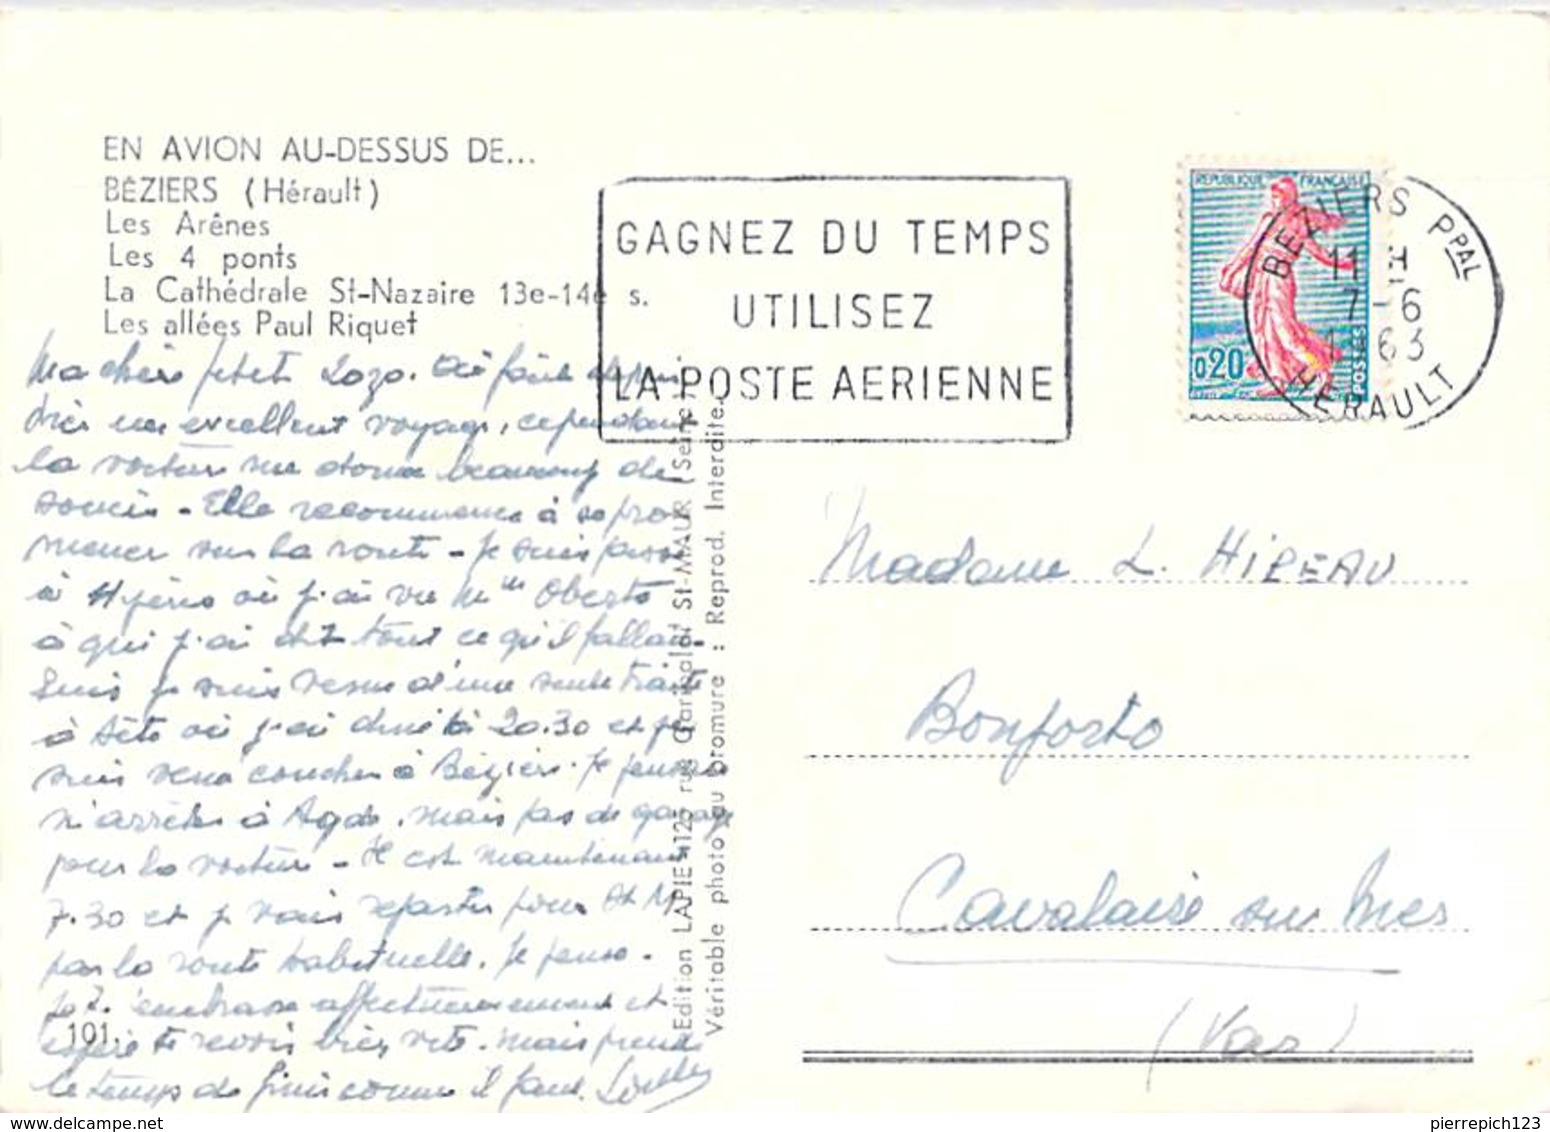 EN AVION AU-DESSUS DE...
BÉZIERS (Hérault)
Les Arênes
Les 4 ponts
La Cathédrale St-Nazaire 13e-14e s.
Les allées Paul Riquet
GAGNEZ DU TEMPS
UTILISEZ
LA POSTE AERIENNE
REPUBLIQUE FRANÇAISE
0,20
POSTES
BEZIERS PPAL
11 H
7-6
1963
HERAULT
Ma chère petit Zozo. Ai fait depuis
hier un excellent voyage, cependant
la voiture me donne beaucoup de
soucis - Elle recommence à se pro
mener sur la route - Je suis passé
à Hyères où j'ai vu Mlle Oberto
à qui j'ai dit tout ce qu'il fallait
Puis je suis venu d'une seule traite
à Sète où j'ai diné à 20.30 et je
suis venu coucher à Béziers. Je pensais
m'arrêter à Agde, mais pas de garage
pour la voiture - Il est maintenant
7.30 et je vais repartir pour St M
par la route habituelle. Je pense
t'embrasse affectueusement et
espère te revoir bien vite. Mais prends
le temps de finir comme il faut.
101.
Edition LAPIE 125 rue Garibaldi St-MAUR (Seine)
Véritable photo au bromure : Reprod. Interdite.
Madame L. HIPEAU
Bonporto
Cavalaire sur Mer
(Var)
pierrepich123